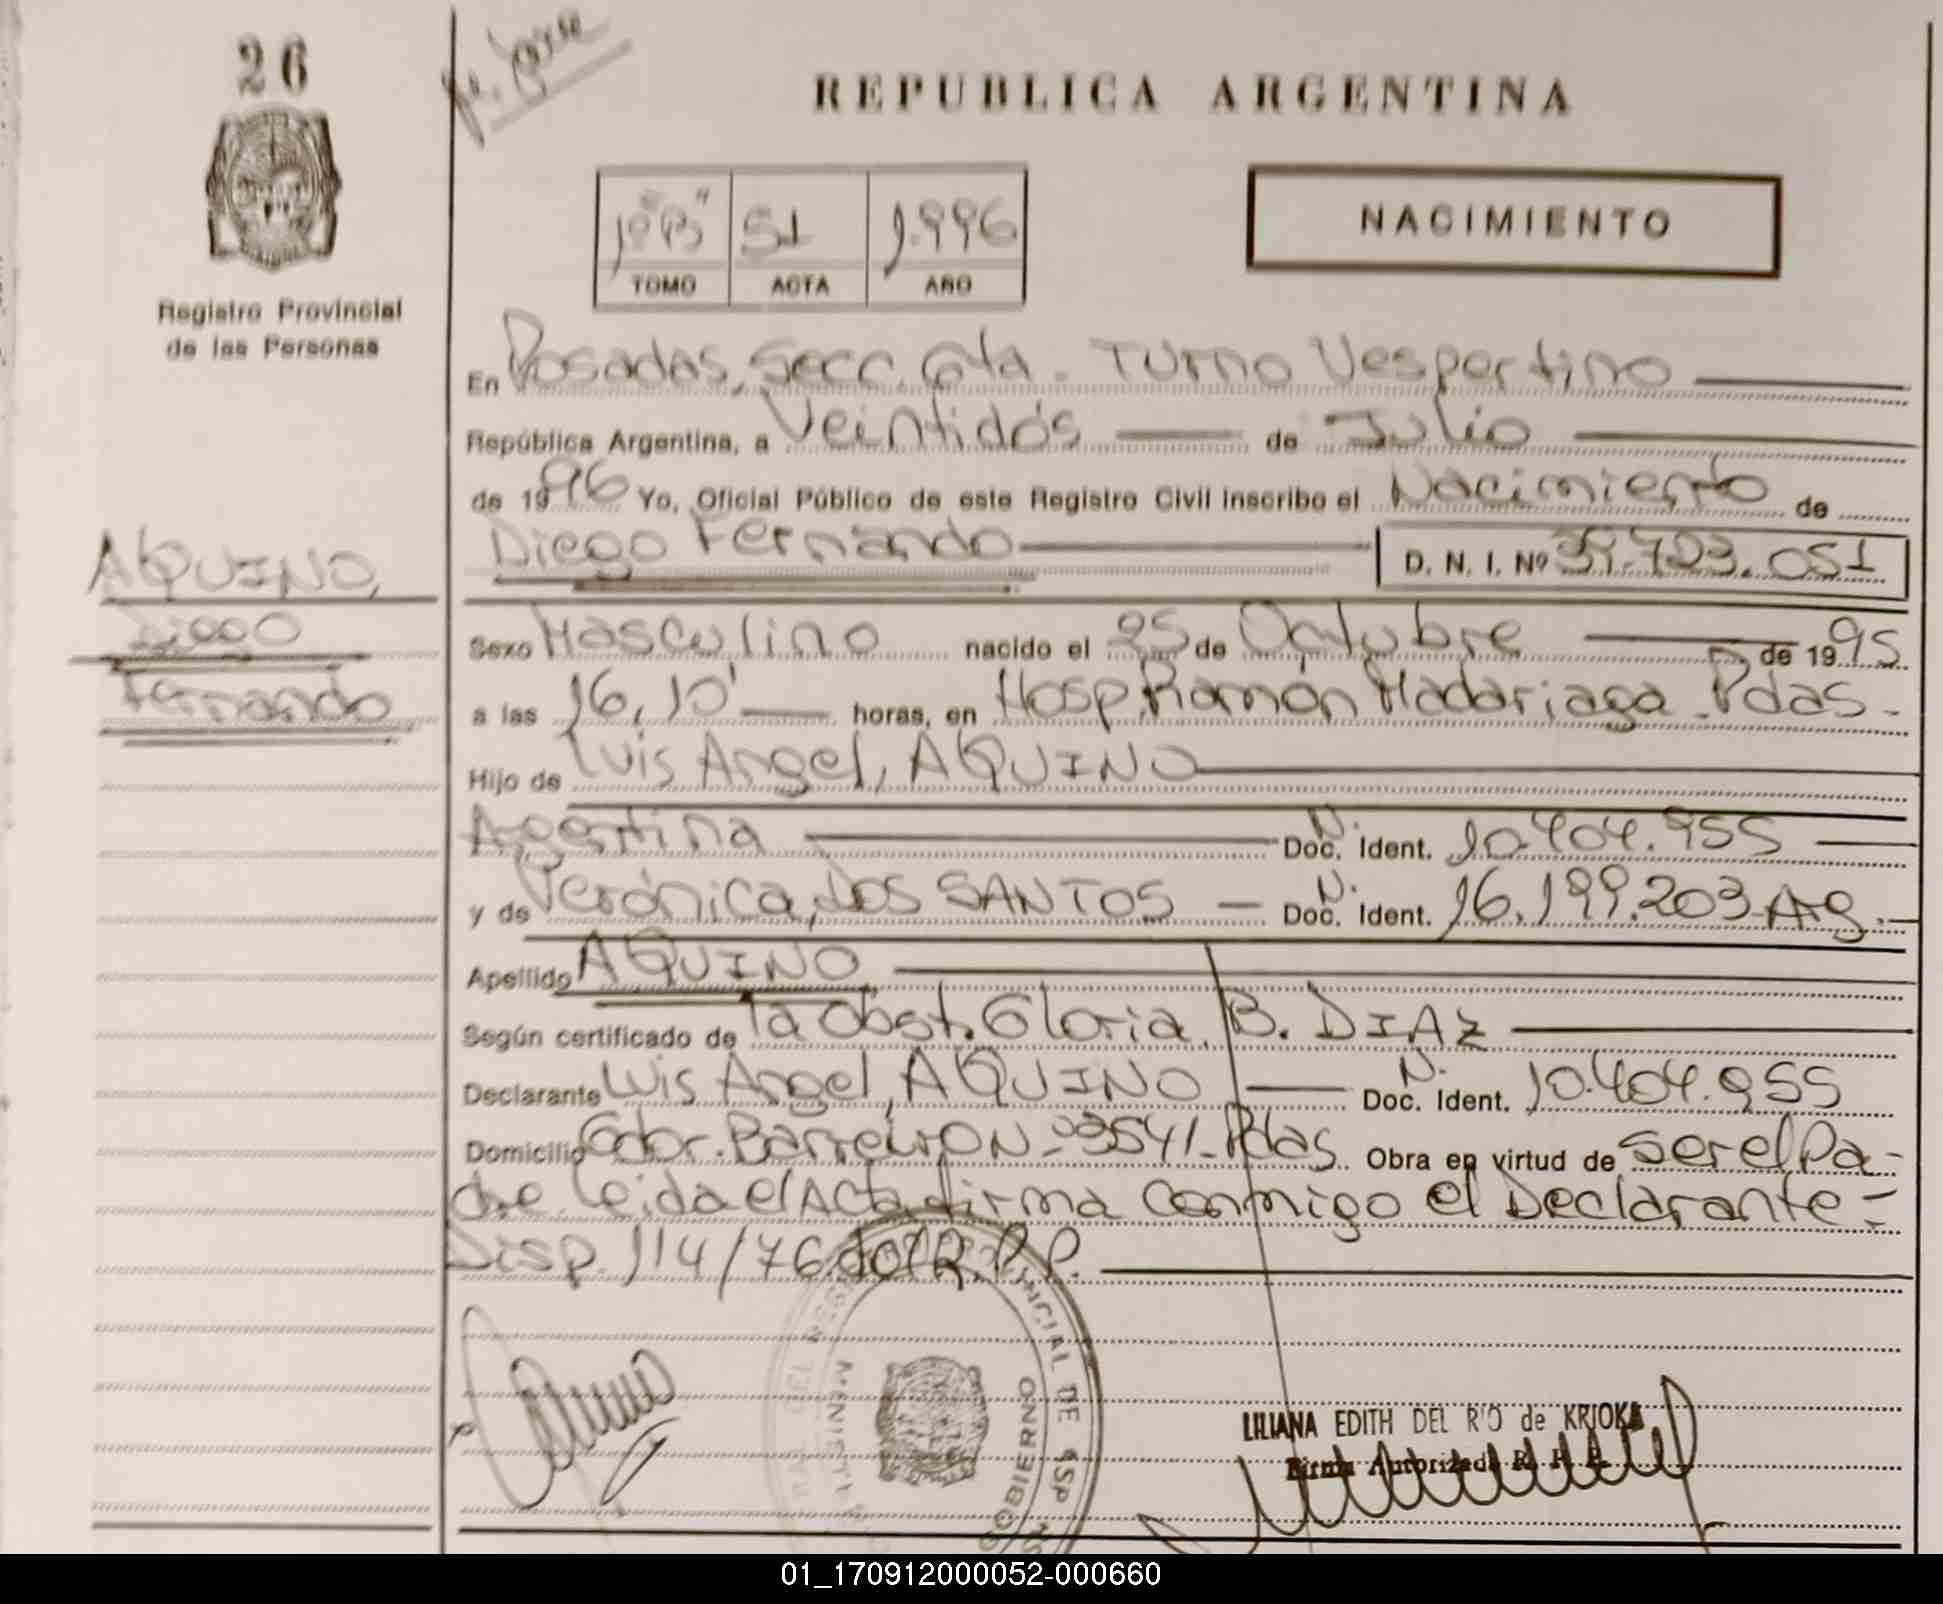 26
REPUBLICA ARGENTINA
Registro Provincial
de las Personas
1º "B" 51 1.996
TOMO ACTA AÑO
NACIMIENTO
En Posadas, Secc. 6ta. Turno Vespertino
República Argentina, a Veintidós de Julio
de 1996 Yo, Oficial Público de este Registro Civil inscribo el Nacimiento de
Diego Fernando D. N. I. Nº 39.723.051
AQUINO,
Diego
Fernando
Sexo Masculino nacido el 25 de Octubre de 1995
a las 16,10' horas, en Hosp. Ramón Madariaga - Pdas -
Hijo de Luis Angel, AQUINO
Agentina N. Doc. Ident. 10.404.955
y de Verónica, Dos SANTOS N. Doc. Ident. 16.199.203 Arg.
Apellido AQUINO
Según certificado de la Obst. Gloria B. DIAZ
Declarante Luis Angel, AQUINO N. Doc. Ident. 10.404.955
Domicilio Gdor. Barreiro Nº 3541 - Pdas. Obra en virtud de ser el Pa-
dre. Leida el Acta firma conmigo el Declarante -
Disp. 114/76 del R.P.P.
LILIANA EDITH DEL RIO de KRIOKA
Firma Autorizada R. P. P.
MINISTE
GOBIERNO
NCIAL DE
01_170912000052-000660